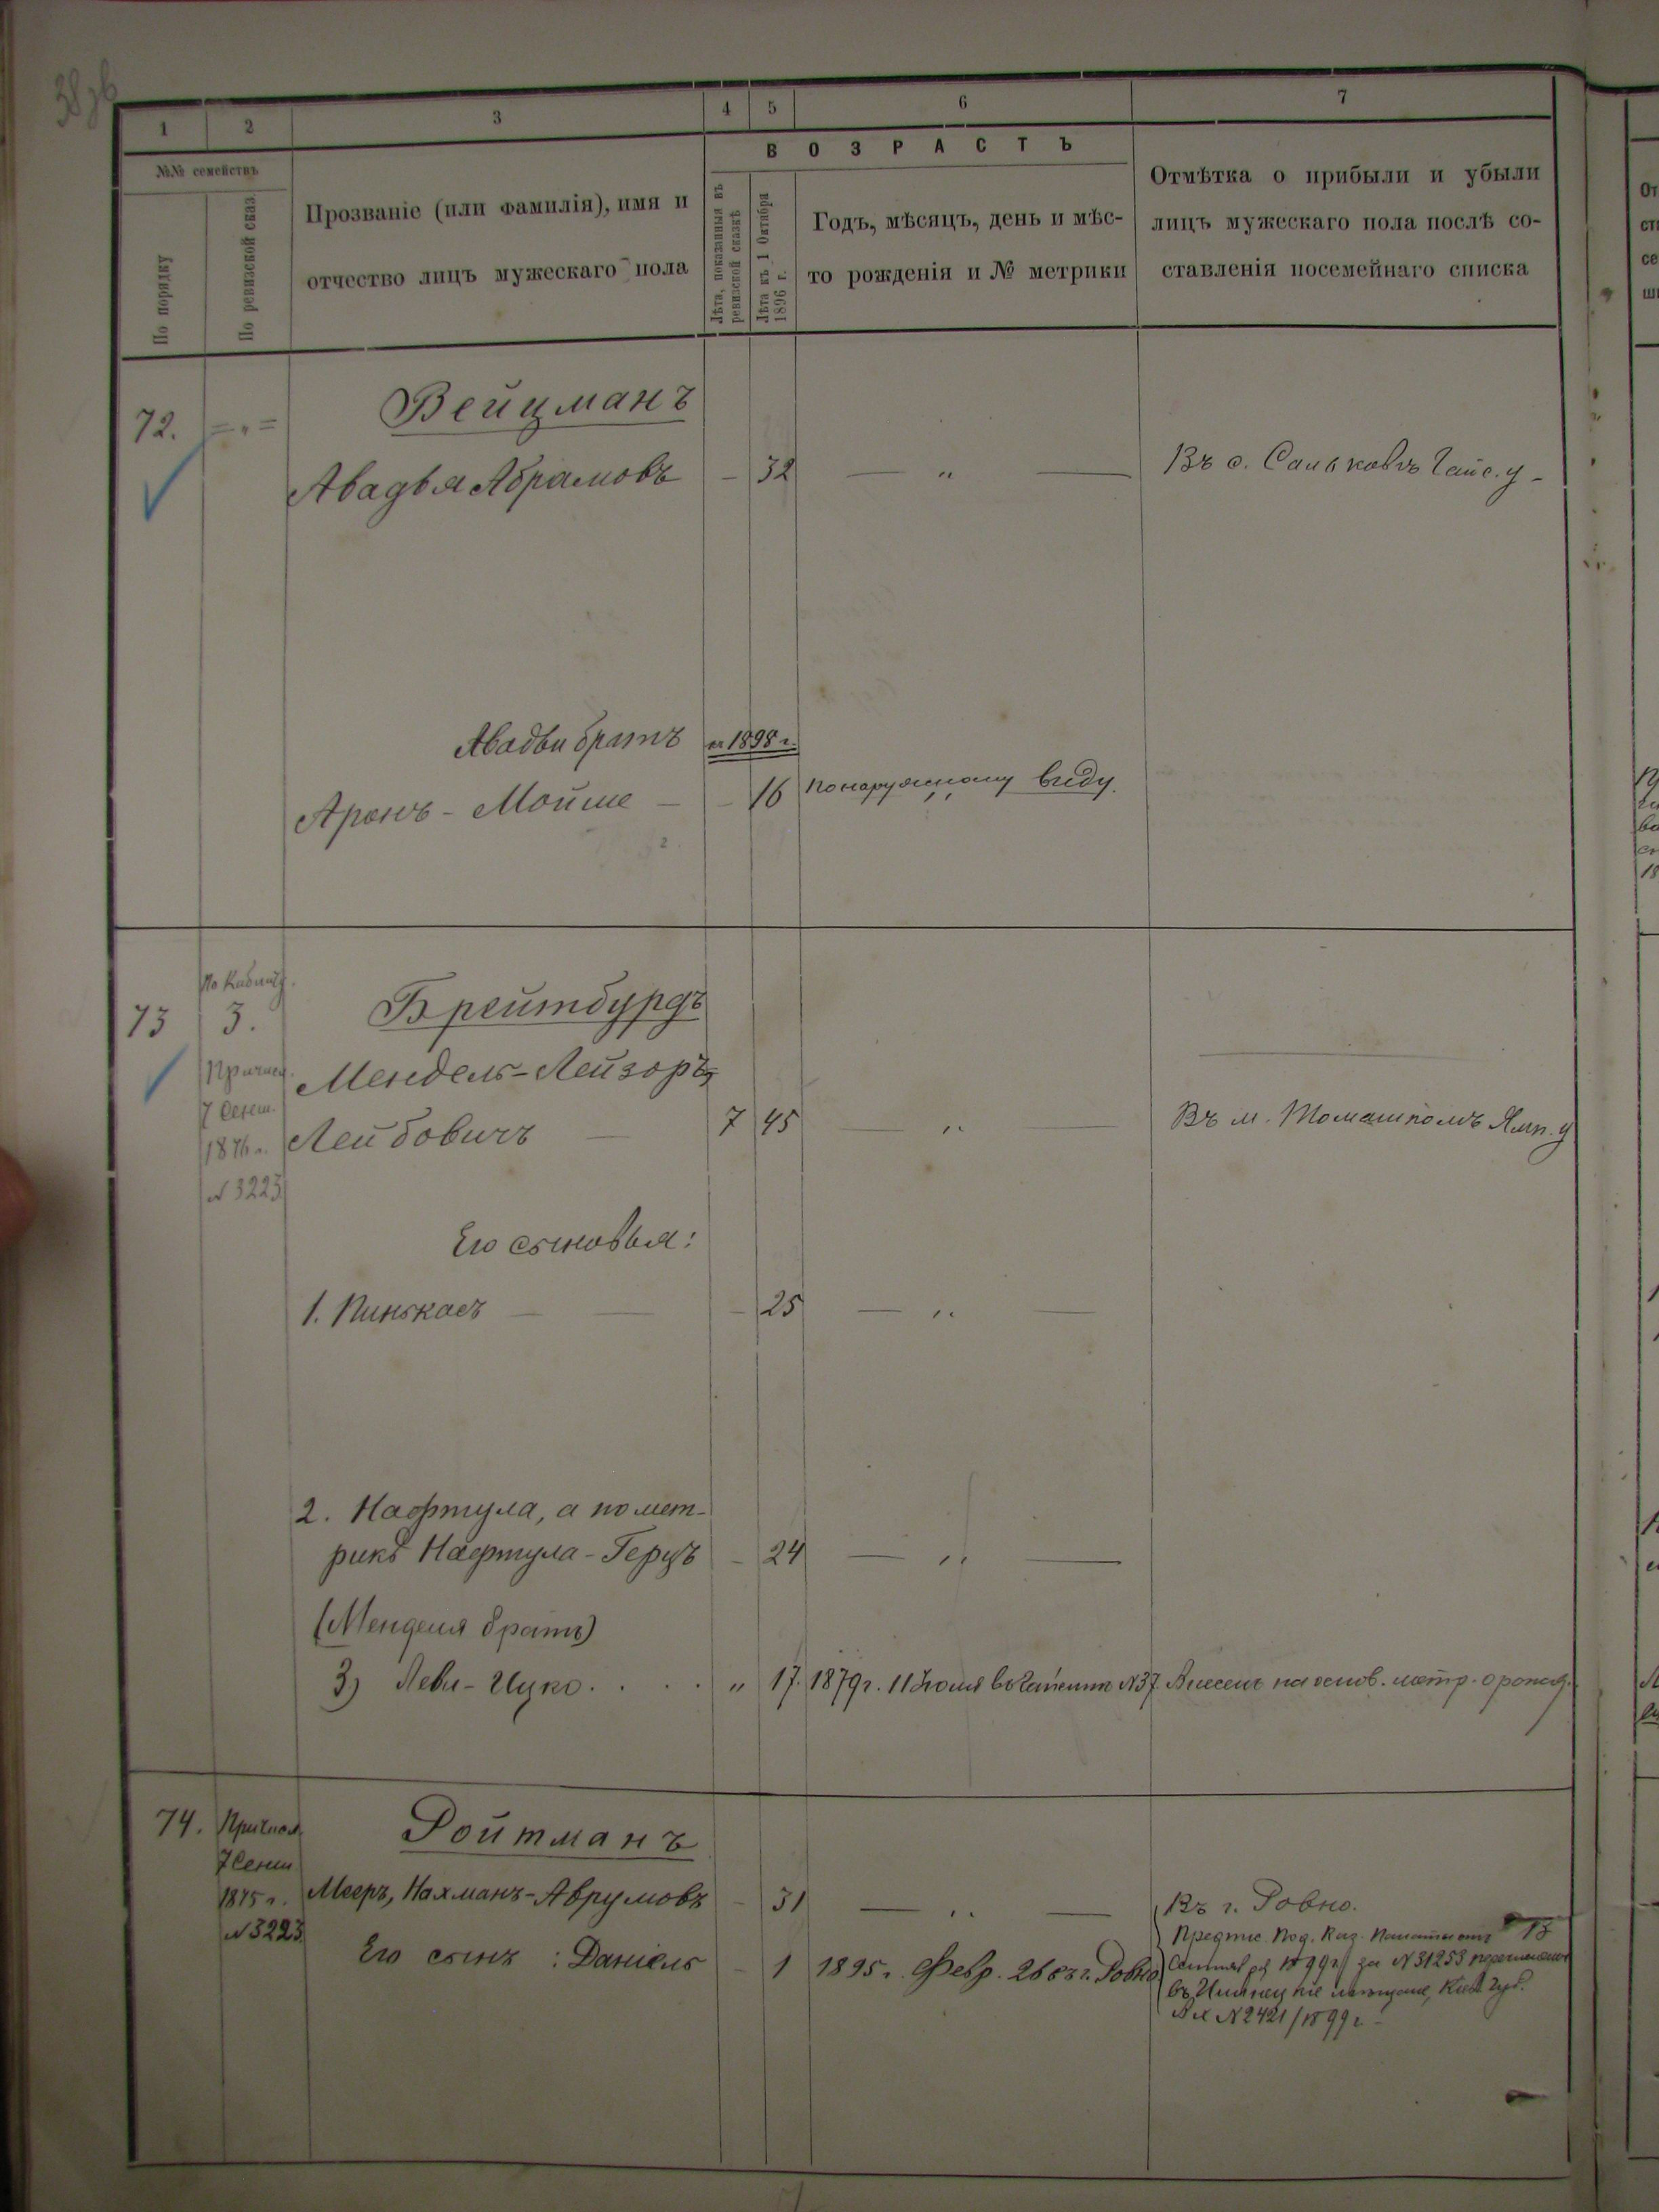 1 2 3 4 5 6 7
№№ семействъ
По порядку
По ревизской сказ.
Прозваніе (или фамилія), имя и
отчество лицъ мужескаго пола
ВОЗРАСТЪ
Лѣта, показанныя въ
ревизской сказкѣ
Лѣта къ 1 Октября
1896 г.
Годъ, мѣсяцъ, день и мѣс-
то рожденія и № метрики
Отмѣтка о прибыли и убыли
лицъ мужескаго пола послѣ со-
ставленія посемейнаго списка
72. = „ =
Вейцманъ
Авадья Абрамовъ – 32 — „ — Въ с. Сальковѣ Гайс. у
Авадьи братъ 1898 г.
Аронъ-Мойше – – 16 по наружному виду.
73 3.
Брейтбурдъ
Причисл.
7 Сент.
1876 г.
№ 3223
Мендель-Лейзоръ
Лейбовичъ — 7 45 — „ — Въ м. Томашполѣ Ямп. у
Его сыновья:
1. Пинькасъ — — – 25 — „ —
2. Нафтула, а по мет-
рикѣ Нафтула-Герцъ – 24 — „ —
(Менделя братъ)
3) Леви-Ицко. . . . . „ 17. 1879 г. 11 № 37. Внесенъ на основ. метр. о рожд.
74. Причисл.
7 Сент.
1875 г.
№ 3223
Ройтманъ
Мееръ, Нахманъ-Аврумовъ – 31 — „ — Въ г. Ровно.
Его сынъ: Даніель – 1 1895 г. Февр. 26 въ г. Ровно
Предпис. Под. Каз. Палаты отъ 13
1899 г. за № 31253 перечислен
въ мѣщане, Кіев. Губ.
Вх № 2421/1899 г. –